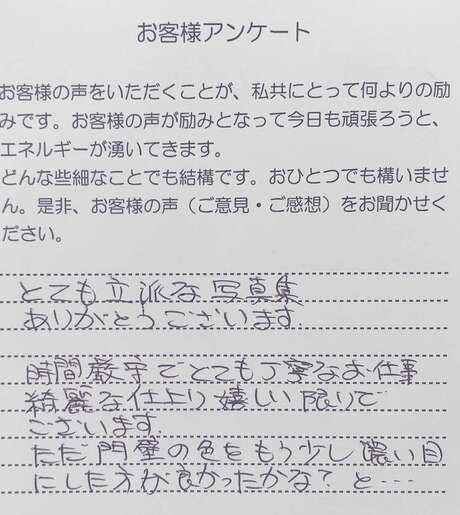 お客様アンケート
お客様の声をいただくことが、私共にとって何よりの励
みです。お客様の声が励みとなって今日も頑張ろうと、
エネルギーが湧いてきます。
どんな些細なことでも結構です。おひとつでも構いませ
ん。是非、お客様の声（ご意見・ご感想）をお聞かせく
ださい。
とても立派な写真集
ありがとうございます.
時間厳守でとても丁寧なお仕事
綺麗な仕上り嬉しい限りで
ございます.
ただ門壁の色をもう少し濃い目
にした方が良かったかな？と…